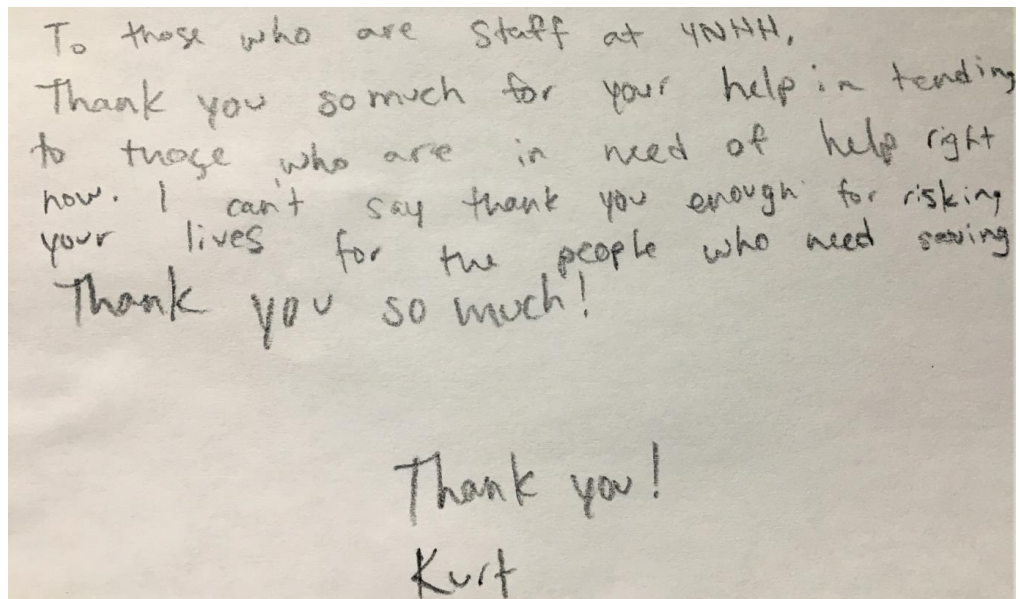 To those who are staff at YNHH,
Thank you so much for your help in tending
to those who are in need of help right
now. I can't say thank you enough for risking
your lives for the people who need saving
Thank you so much!
Thank you!
Kurt